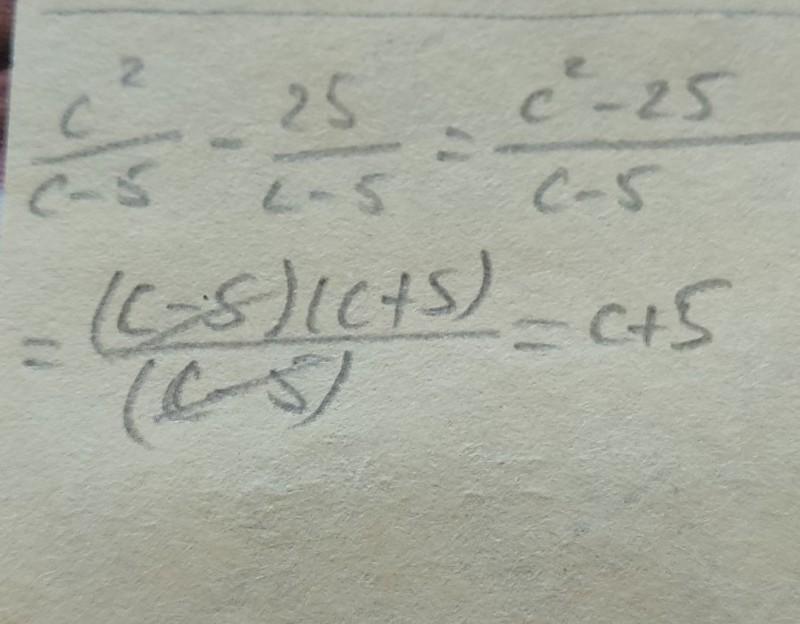 c²/(c-5) - 25/(c-5) = (c²-25)/(c-5)
= (c-5)(c+5)/(c-5) = c+5